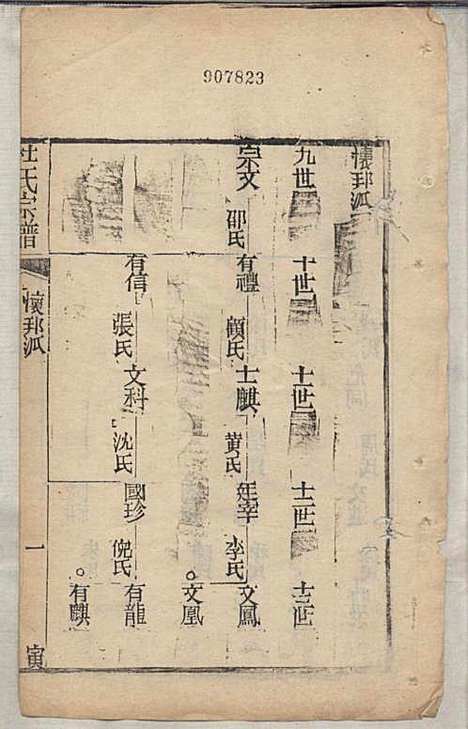 907823
懷邦派
九世 十世 十一世 十二世 十三世
宗文 有禮 士麒 廷宰 文鳳
邵氏 顧氏 黃氏 李氏
文凰
有信 文科 國珍 有龍
張氏 沈氏 倪氏
有麒
杜氏宗譜 懷邦派 一 寅